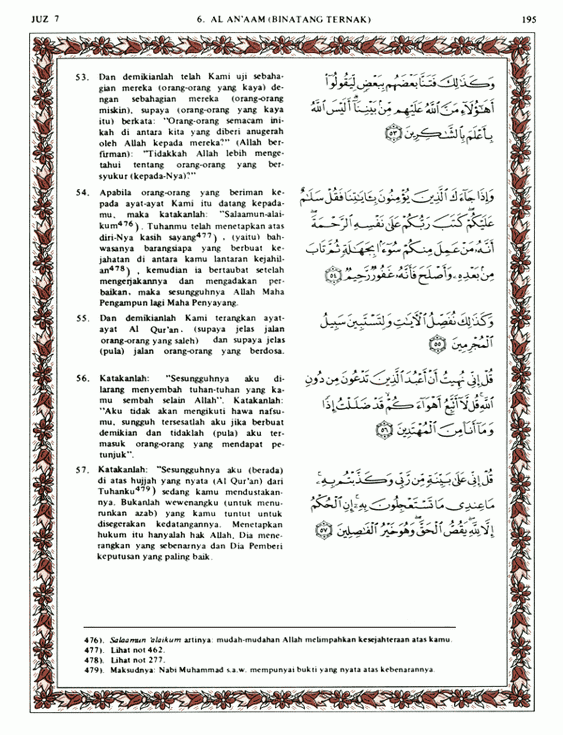 JUZ 7
6. AL AN'AAM (BINATANG TERNAK)
195
53. Dan demikianlah telah Kami uji sebaha-
gian mereka (orang-orang yang kaya) de-
ngan sebahagian mereka (orang-orang
miskin), supaya (orang-orang yang kaya
itu) berkata: "Orang-orang semacam ini-
kah di antara kita yang diberi anugerah
oleh Allah kepada mereka?" (Allah ber-
firman): "Tidakkah Allah lebih menge-
tahui tentang orang-orang yang ber-
syukur (kepada-Nya)?"
وَكَذَٰلِكَ فَتَنَّا بَعْضَهُم بِبَعْضٍ لِّيَقُولُوٓا۟
أَهَٰٓؤُلَآءِ مَنَّ ٱللَّهُ عَلَيْهِم مِّنۢ بَيْنِنَآ أَلَيْسَ ٱللَّهُ
بِأَعْلَمَ بِٱلشَّٰكِرِينَ ﴿٥٣﴾
54. Apabila orang-orang yang beriman ke-
pada ayat-ayat Kami itu datang kepada-
mu, maka katakanlah: "Salaamun-alai-
kum476). Tuhanmu telah menetapkan atas
diri-Nya kasih sayang477), (yaitu) bah-
wasanya barangsiapa yang berbuat ke-
jahatan di antara kamu lantaran kejahil-
an478), kemudian ia bertaubat setelah
mengerjakannya dan mengadakan per-
baikan, maka sesungguhnya Allah Maha
Pengampun lagi Maha Penyayang.
وَإِذَا جَآءَكَ ٱلَّذِينَ يُؤْمِنُونَ بِـَٔايَٰتِنَا فَقُلْ سَلَٰمٌ
عَلَيْكُمْ كَتَبَ رَبُّكُمْ عَلَىٰ نَفْسِهِ ٱلرَّحْمَةَ
أَنَّهُۥ مَنْ عَمِلَ مِنكُمْ سُوٓءًۢا بِجَهَٰلَةٍ ثُمَّ تَابَ
مِنۢ بَعْدِهِۦ وَأَصْلَحَ فَأَنَّهُۥ غَفُورٌ رَّحِيمٌ ﴿٥٤﴾
55. Dan demikianlah Kami terangkan ayat-
ayat Al Qur'an, (supaya jelas jalan
orang-orang yang saleh) dan supaya jelas
(pula) jalan orang-orang yang berdosa.
وَكَذَٰلِكَ نُفَصِّلُ ٱلْـَٔايَٰتِ وَلِتَسْتَبِينَ سَبِيلُ
ٱلْمُجْرِمِينَ ﴿٥٥﴾
56. Katakanlah: "Sesungguhnya aku di-
larang menyembah tuhan-tuhan yang ka-
mu sembah selain Allah". Katakanlah:
"Aku tidak akan mengikuti hawa nafsu-
mu, sungguh tersesatlah aku jika berbuat
demikian dan tidaklah (pula) aku ter-
masuk orang-orang yang mendapat pe-
tunjuk".
قُلْ إِنِّى نُهِيتُ أَنْ أَعْبُدَ ٱلَّذِينَ تَدْعُونَ مِن دُونِ
ٱللَّهِ قُل لَّآ أَتَّبِعُ أَهْوَآءَكُمْ قَدْ ضَلَلْتُ إِذًا
وَمَآ أَنَا۠ مِنَ ٱلْمُهْتَدِينَ ﴿٥٦﴾
57. Katakanlah: "Sesungguhnya aku (berada)
di atas hujjah yang nyata (Al Qur'an) dari
Tuhanku479) sedang kamu mendustakan-
nya. Bukanlah wewenangku (untuk menu-
runkan azab) yang kamu tuntut untuk
disegerakan kedatangannya. Menetapkan
hukum itu hanyalah hak Allah, Dia mene-
rangkan yang sebenarnya dan Dia Pemberi
keputusan yang paling baik.
قُلْ إِنِّى عَلَىٰ بَيِّنَةٍ مِّن رَّبِّى وَكَذَّبْتُم بِهِۦ
مَا عِندِى مَا تَسْتَعْجِلُونَ بِهِۦٓ إِنِ ٱلْحُكْمُ
إِلَّا لِلَّهِ يَقُصُّ ٱلْحَقَّ وَهُوَ خَيْرُ ٱلْفَٰصِلِينَ ﴿٥٧﴾
476). Salaamun 'alaikum artinya: mudah-mudahan Allah melimpahkan kesejahteraan atas kamu.
477). Lihat not 462.
478). Lihat not 277.
479). Maksudnya: Nabi Muhammad s.a.w. mempunyai bukti yang nyata atas kebenarannya.